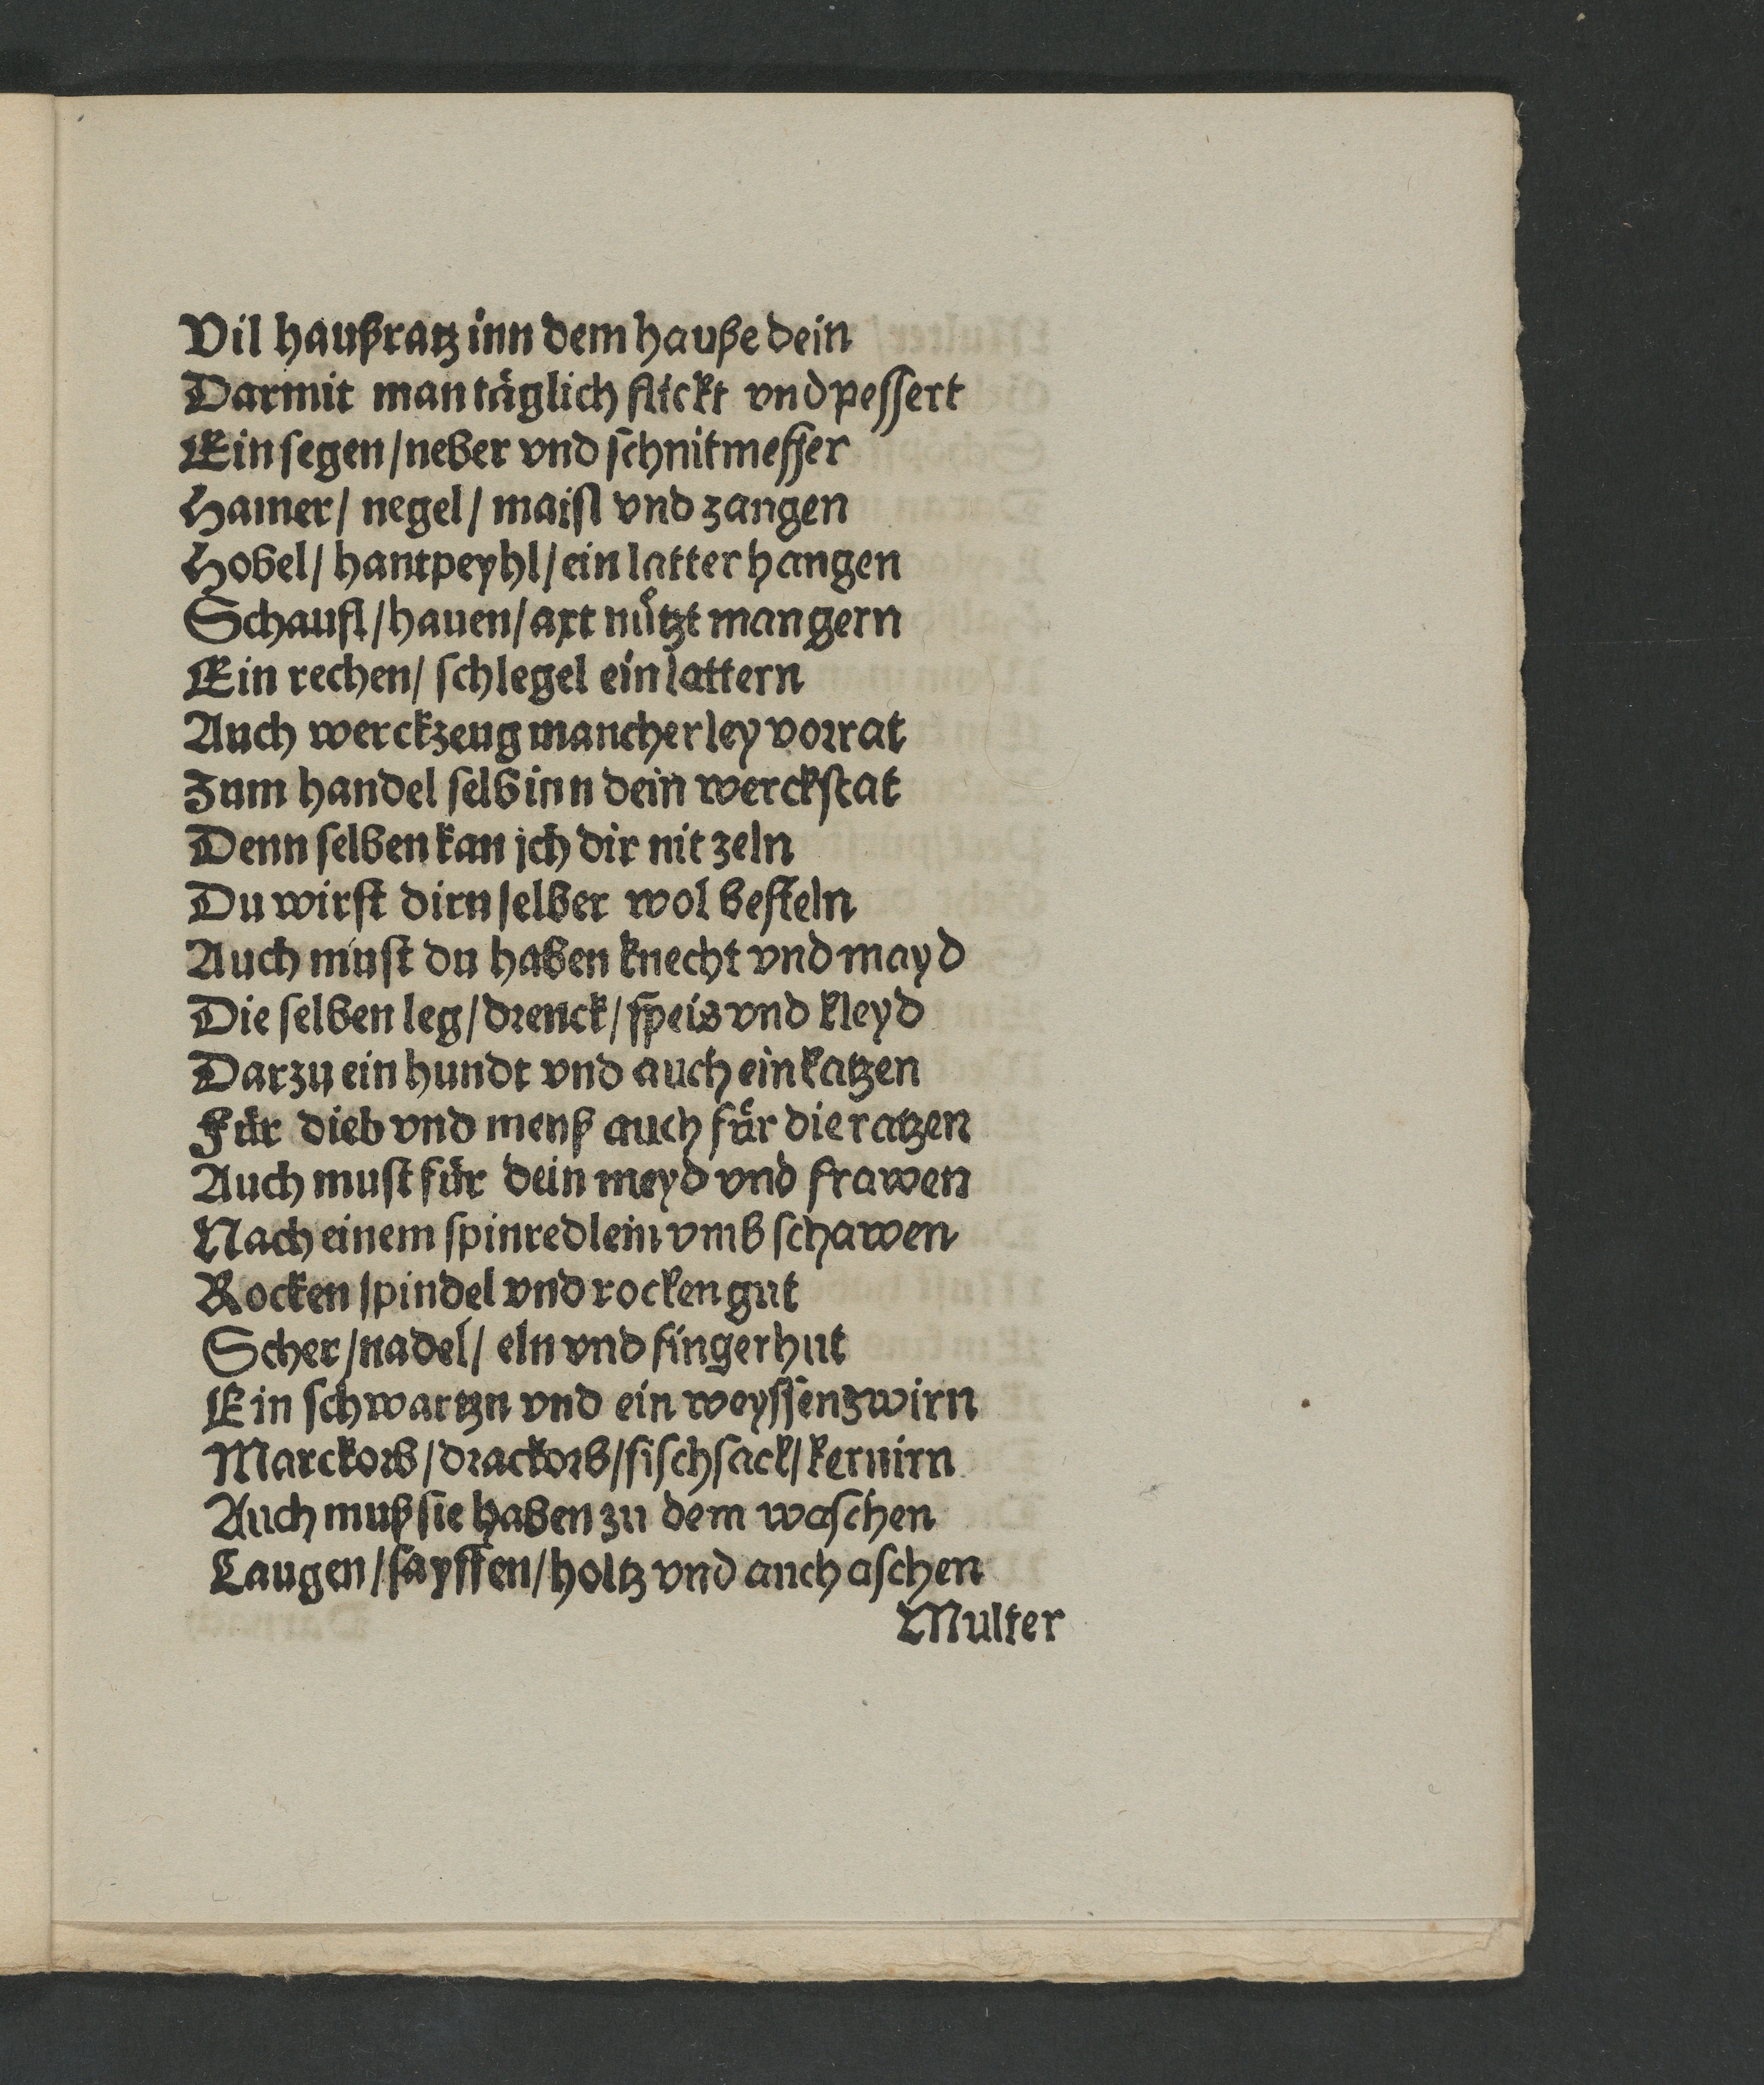 Vil haußratz inn dem hauße dein
Darmit man täglich flickt vnd pessert
Ein segen/neber vnd schnitmesser
Hamer/ negel/ maisl vnd zangen
Hobel/ hantpeyhl/ein latter hangen
Schaufl/hauen/axt nützt man gern
Ein rechen/ schlegel ein lattern
Auch werckzeug mancherley vorrat
Zum handel selb inn dein werckstat
Denn selben kan jch dir nit zeln
Du wirst dirn selber wol besteln
Auch must du haben knecht vnd mayd
Die selben leg/drenck/speis vnd kleyd
Darzu ein hundt vnd auch ein katzen
Für dieb vnd menß auch für die ratzen
Auch must für dein meyd vnd frawen
Nach einem spinredlein vmb schawen
Rocken spindel vnd rocken gut
Scher/nadel/ eln vnd fingerhut
Ein schwartzn vnd ein weyssen zwirn
Marckorb/drackorb/fischsack/kernirn
Auch muß sie haben zu dem waschen
Laugen/sayffen/holtz vnd auch aschen
Multer